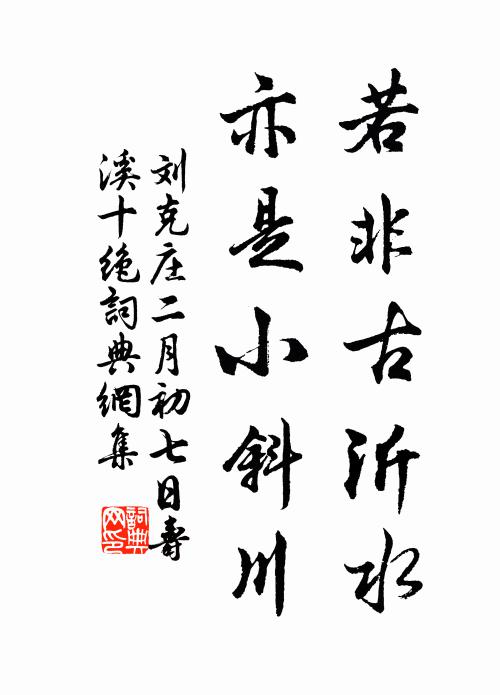 若非古沂水
亦是小斜川
刘克庄二月初七日寿
溪十绝詞典網集
詞典
网印